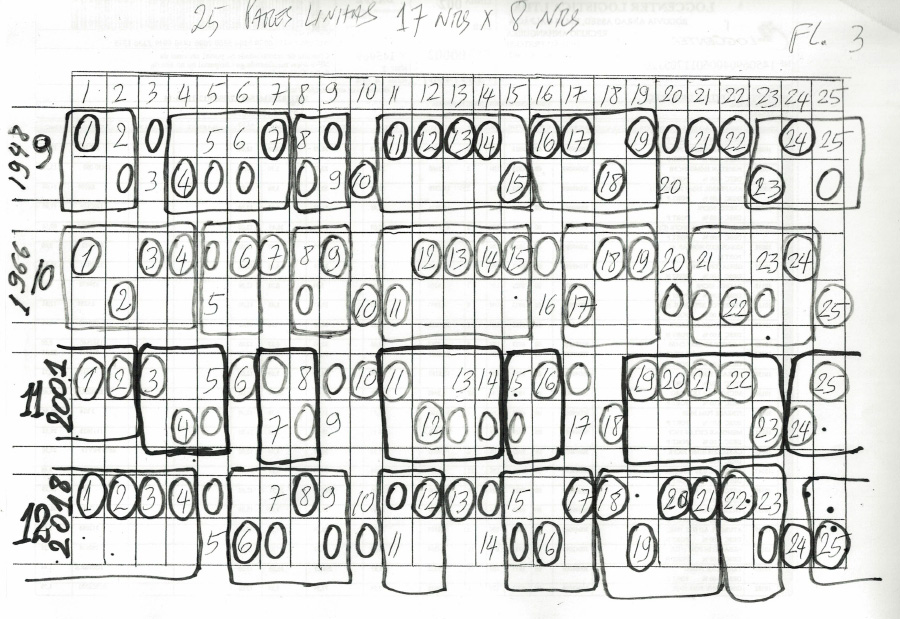 25 PARES LINHAS 17 NRS X 8 NRS
FL. 3
1 2 3 4 5 6 7 8 9 10 11 12 13 14 15 16 17 18 19 20 21 22 23 24 25
1948 9
1 2 0 5 6 7 8 0 11 12 13 14 16 17 19 0 21 22 24 25
0 3 4 0 0 0 9 10 15 18 20 23 0
1966 10
1 3 4 0 6 7 8 9 12 13 14 15 0 18 19 20 21 23 24
2 5 0 10 11 16 17 0 0 22 0 25
2001 11
1 2 3 5 6 0 8 0 10 11 13 14 15 16 0 19 20 21 22 25
4 0 7 0 9 12 0 0 0 17 18 23 24
2018 12
1 2 3 4 0 7 8 9 10 0 12 13 0 15 17 18 20 21 22 23
5 6 0 0 0 11 14 0 16 19 0 24 25